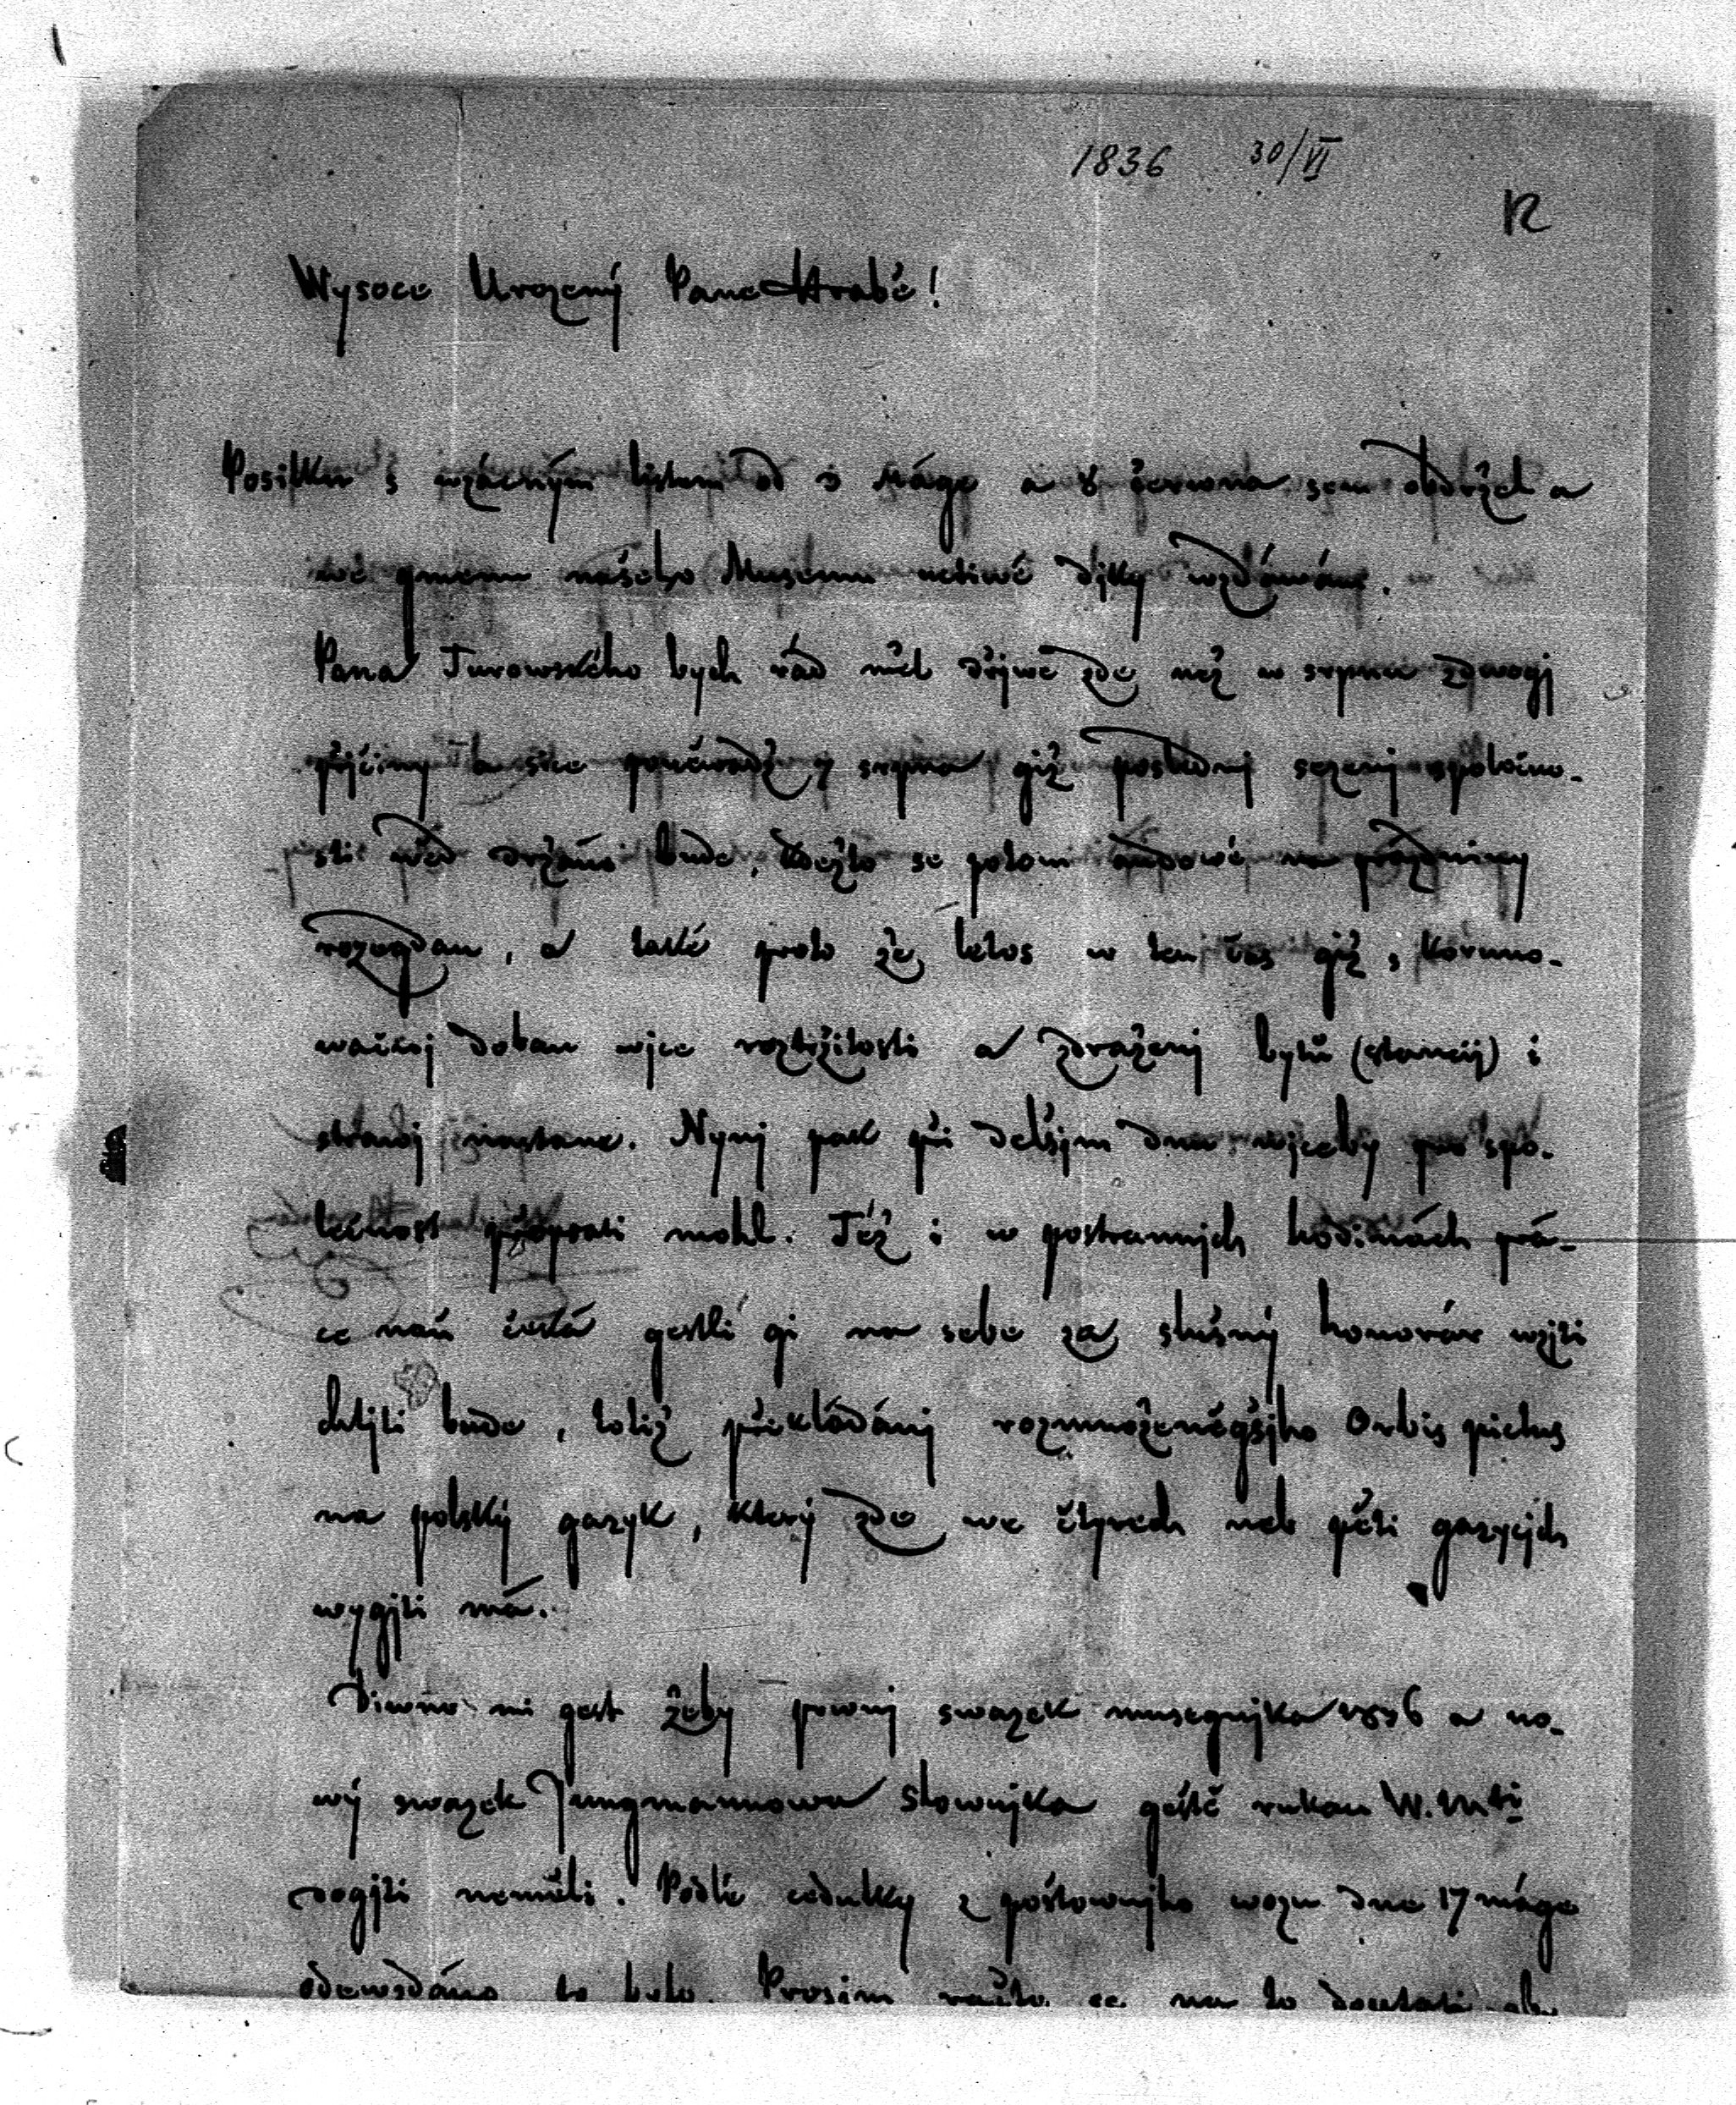 1836 30/VI
12
Wysoce Urozený Pane Hrabě!
Posilku s wzácným listem od 3 Máge a 8 června sem obdržel a
we gmenu našeho Museum uctiwé djky wzdáwám.
Pana Turowského bych rád měl dřjwe zde než w srpnu z dwogj
přjčiny a sice poněwadž w srpnu giž poslednj sezenj společno-
sti věd držáno bude, kdežto se potom audowé na prázdniny
rozegdau, a také proto že letos w ten čas giž s koruno-
wačnj dobau wjce roztržitosti a zdraženj bytů (stancij) i
strawj nastane. Nynj pak při delšjm dnu wjceby pro spo-
lečnost přepsati mohl. Též i w postrannjch hodinách prá-
ce naň čeká gestli gi na sebe za slušný honorár wzjti
chtjti bude, totiž překládánj rozmnoženěgšjho Orbis pictus
na polský gazyk, který zde we čtyrech neb pěti gazycjch
wygjti má.
Diwno mi gest žeby prwnj swazek musegnjka 1836 a no-
wý swazek Jungmannowa Slownjka geště rukau W. Mti
dogjti neměli. Podlé cedulky z poštownjho wozu dne 17 máge
odewzdáno to bylo. Prosim račte se na to doptati aby